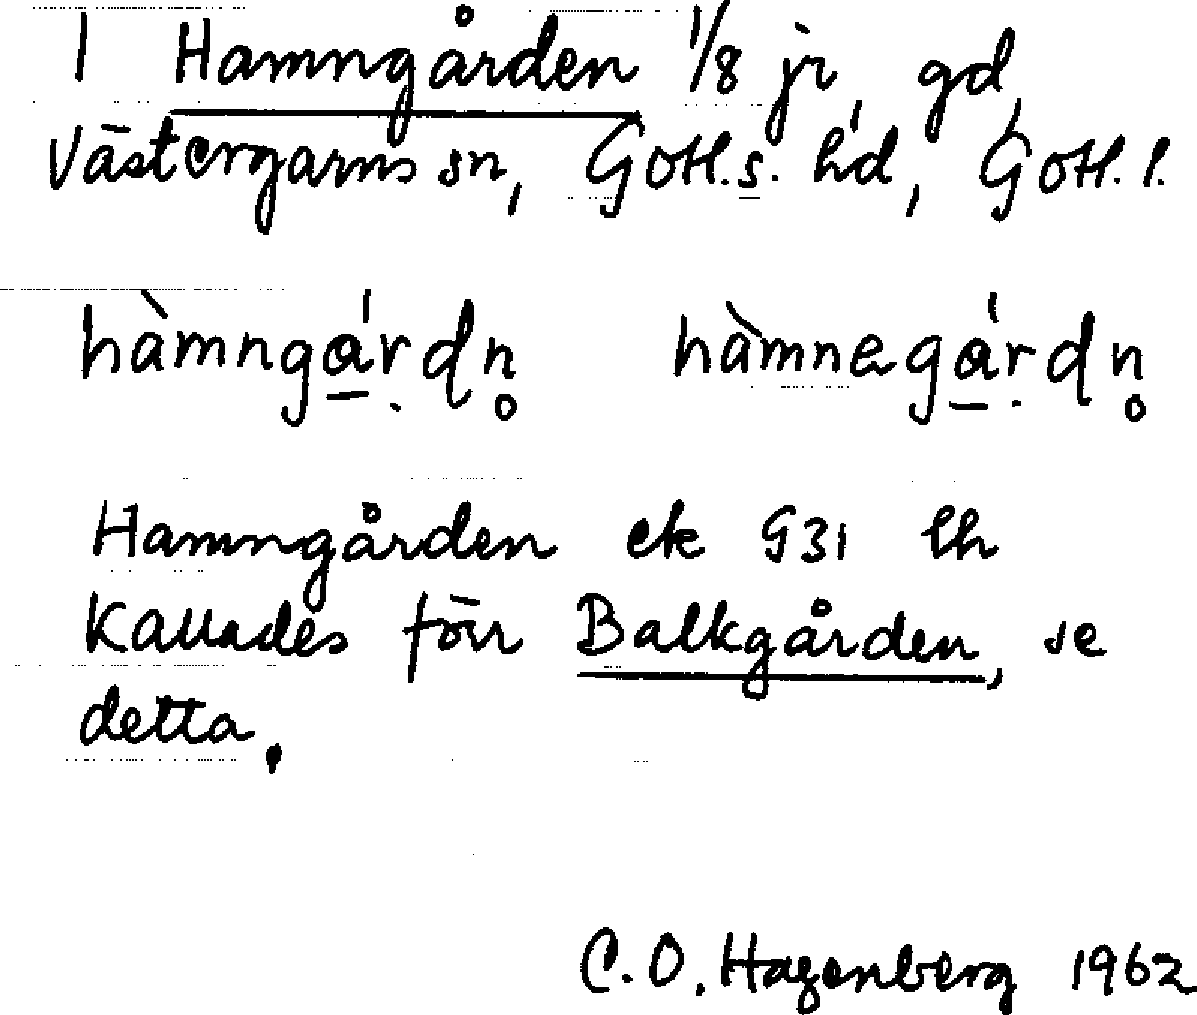 1 Hamngården 1/8 jr, gd,
Västergarns sn, Gotl.s. hd, Gotl. l.
hàmngá̲ṛdn̥ hàmnegá̲ṛdn̥
Hamngården ek G31 lh
Kallades förr Balkgården, se
detta.
C.O. Hagenberg 1962